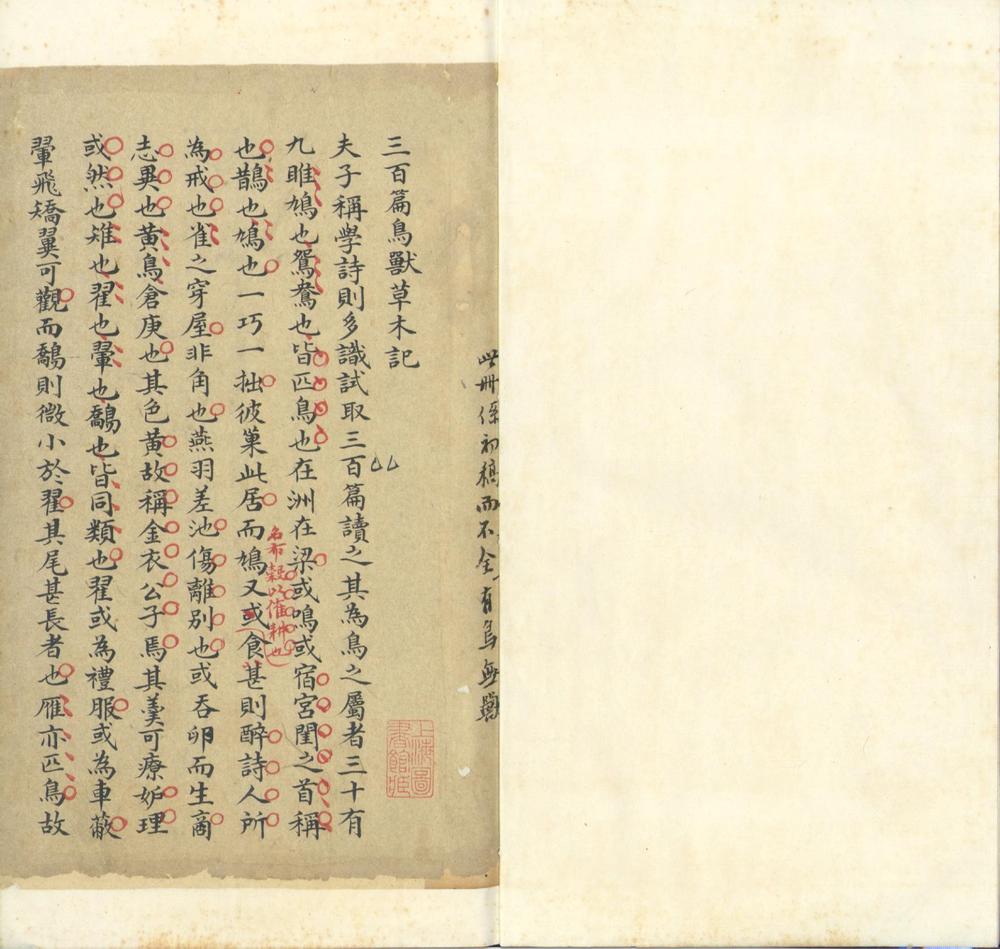 此冊係初稿而不全有鳥無獸
三百篇鳥獸草木記
夫子稱學詩則多識試取三百篇讀之其為鳥之屬者三十有
九雎鳩也鴛鴦也皆匹鳥也在洲在梁或鳴或宿宮閨之首稱
也鵲也鳩也一巧一拙彼巢此居而鳩又或食葚則醉詩人所
名布穀以催耕也
為戒也雀之穿屋非角也燕羽差池傷離別也或吞卵而生商
志異也黃鳥倉庚也其色黃故稱金衣公子焉其羹可療妒理
或然也雉也翟也翬也鷮也皆同類也翟或為禮服或為車蔽
翬飛矯翼可觀而鷮則微小於翟其尾甚長者也雁亦匹鳥故
上海圖書館藏